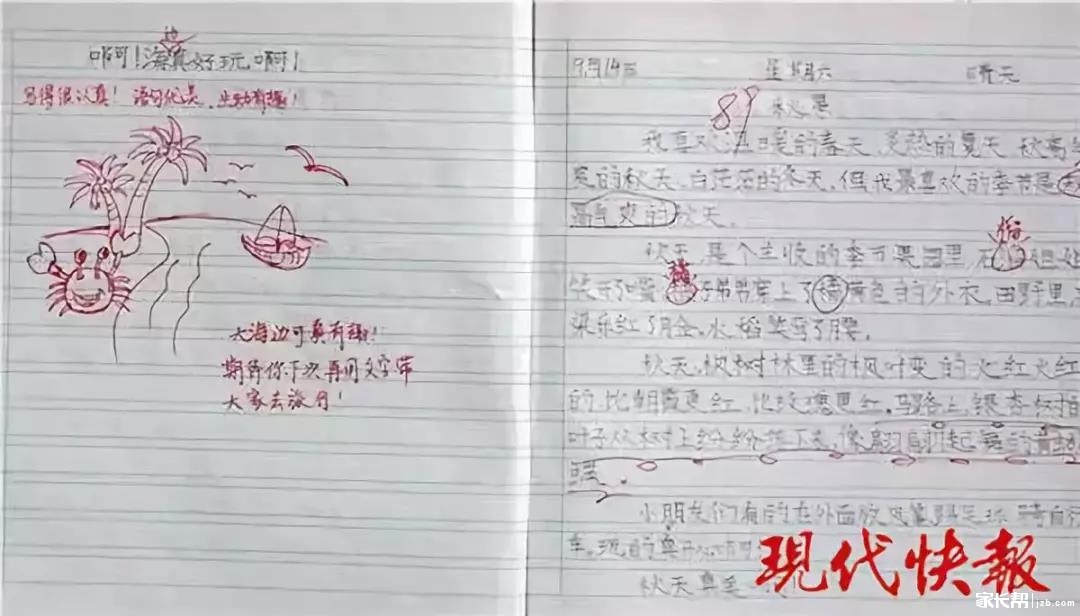 啊！海边真好玩啊！
写得很认真！语句优美，生动有趣！
大海边可真有趣！
期待你下次再用文字带
大家去旅行！
9月14日 星期六 晴天
89 秋景
我喜欢温暖的春天、炎热的夏天、秋高
爽的秋天、白茫茫的冬天，但我最喜欢的季节是
高气爽的秋天。
秋天，是个丰收的季节果园里，石榴姐姐
笑开了嘴，橘子弟弟穿上了橘黄色的外衣，田野里，
梁乐红了脸，水稻笑弯了腰。
秋天，枫树林里的枫叶变的火红火红
的，比朝霞更红，比玫瑰更红。马路上，银杏树
叶子从树上纷纷落下来，像翩翩起舞的黄
小朋友们有的在外面放风筝踢足球、骑自行
车，玩的真开心啊
秋天真美
现代快報
家长帮 jzb.com